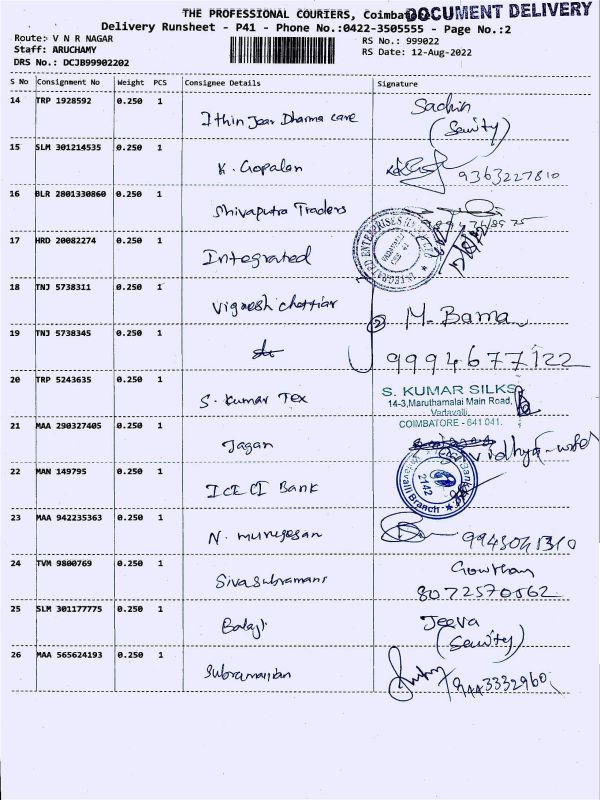 THE PROFESSIONAL COURIERS, Coimbatore
DOCUMENT DELIVERY
Delivery Runsheet - P41 - Phone No.:0422-3505555 - Page No.:2
Route: V N R NAGAR
RS No.: 999022
Staff: ARUCHAMY
RS Date: 12-Aug-2022
DRS No.: DCJB99902202
S No Consignment No Weight PCS Consignee Details Signature
14 TRP 1928592 0.250 1 Ithin Jear Dharma care Sachin
(Security)
15 SLM 301214535 0.250 1 K. Gopalan 9363227810
16 BLR 2801330860 0.250 1 Shivaputra Traders
17 HRD 20082274 0.250 1 Integrated
INTEGRATED ENTERPRISES
18 TNJ 5738311 0.250 1 Vignesh chettiar M. Bama
19 TNJ 5738345 0.250 1 do 9994677122
20 TRP 5243635 0.250 1 S. Kumar Tex
S. KUMAR SILKS
14-3,Maruthamalai Main Road,
Vadavalli,
COIMBATORE - 641 041.
21 MAA 290327405 0.250 1 Jagan Vidhya
22 MAN 149795 0.250 1 ICICI Bank
Bank
2142
Vadavalli Branch
23 MAA 942235363 0.250 1 N. murugesan 9943041310
24 TVM 9800769 0.250 1 Sivasubramani Gowtham
8072570562
25 SLM 301177775 0.250 1 Balaji Jeeva
(Security)
26 MAA 565624193 0.250 1 Subramanian 9443332960